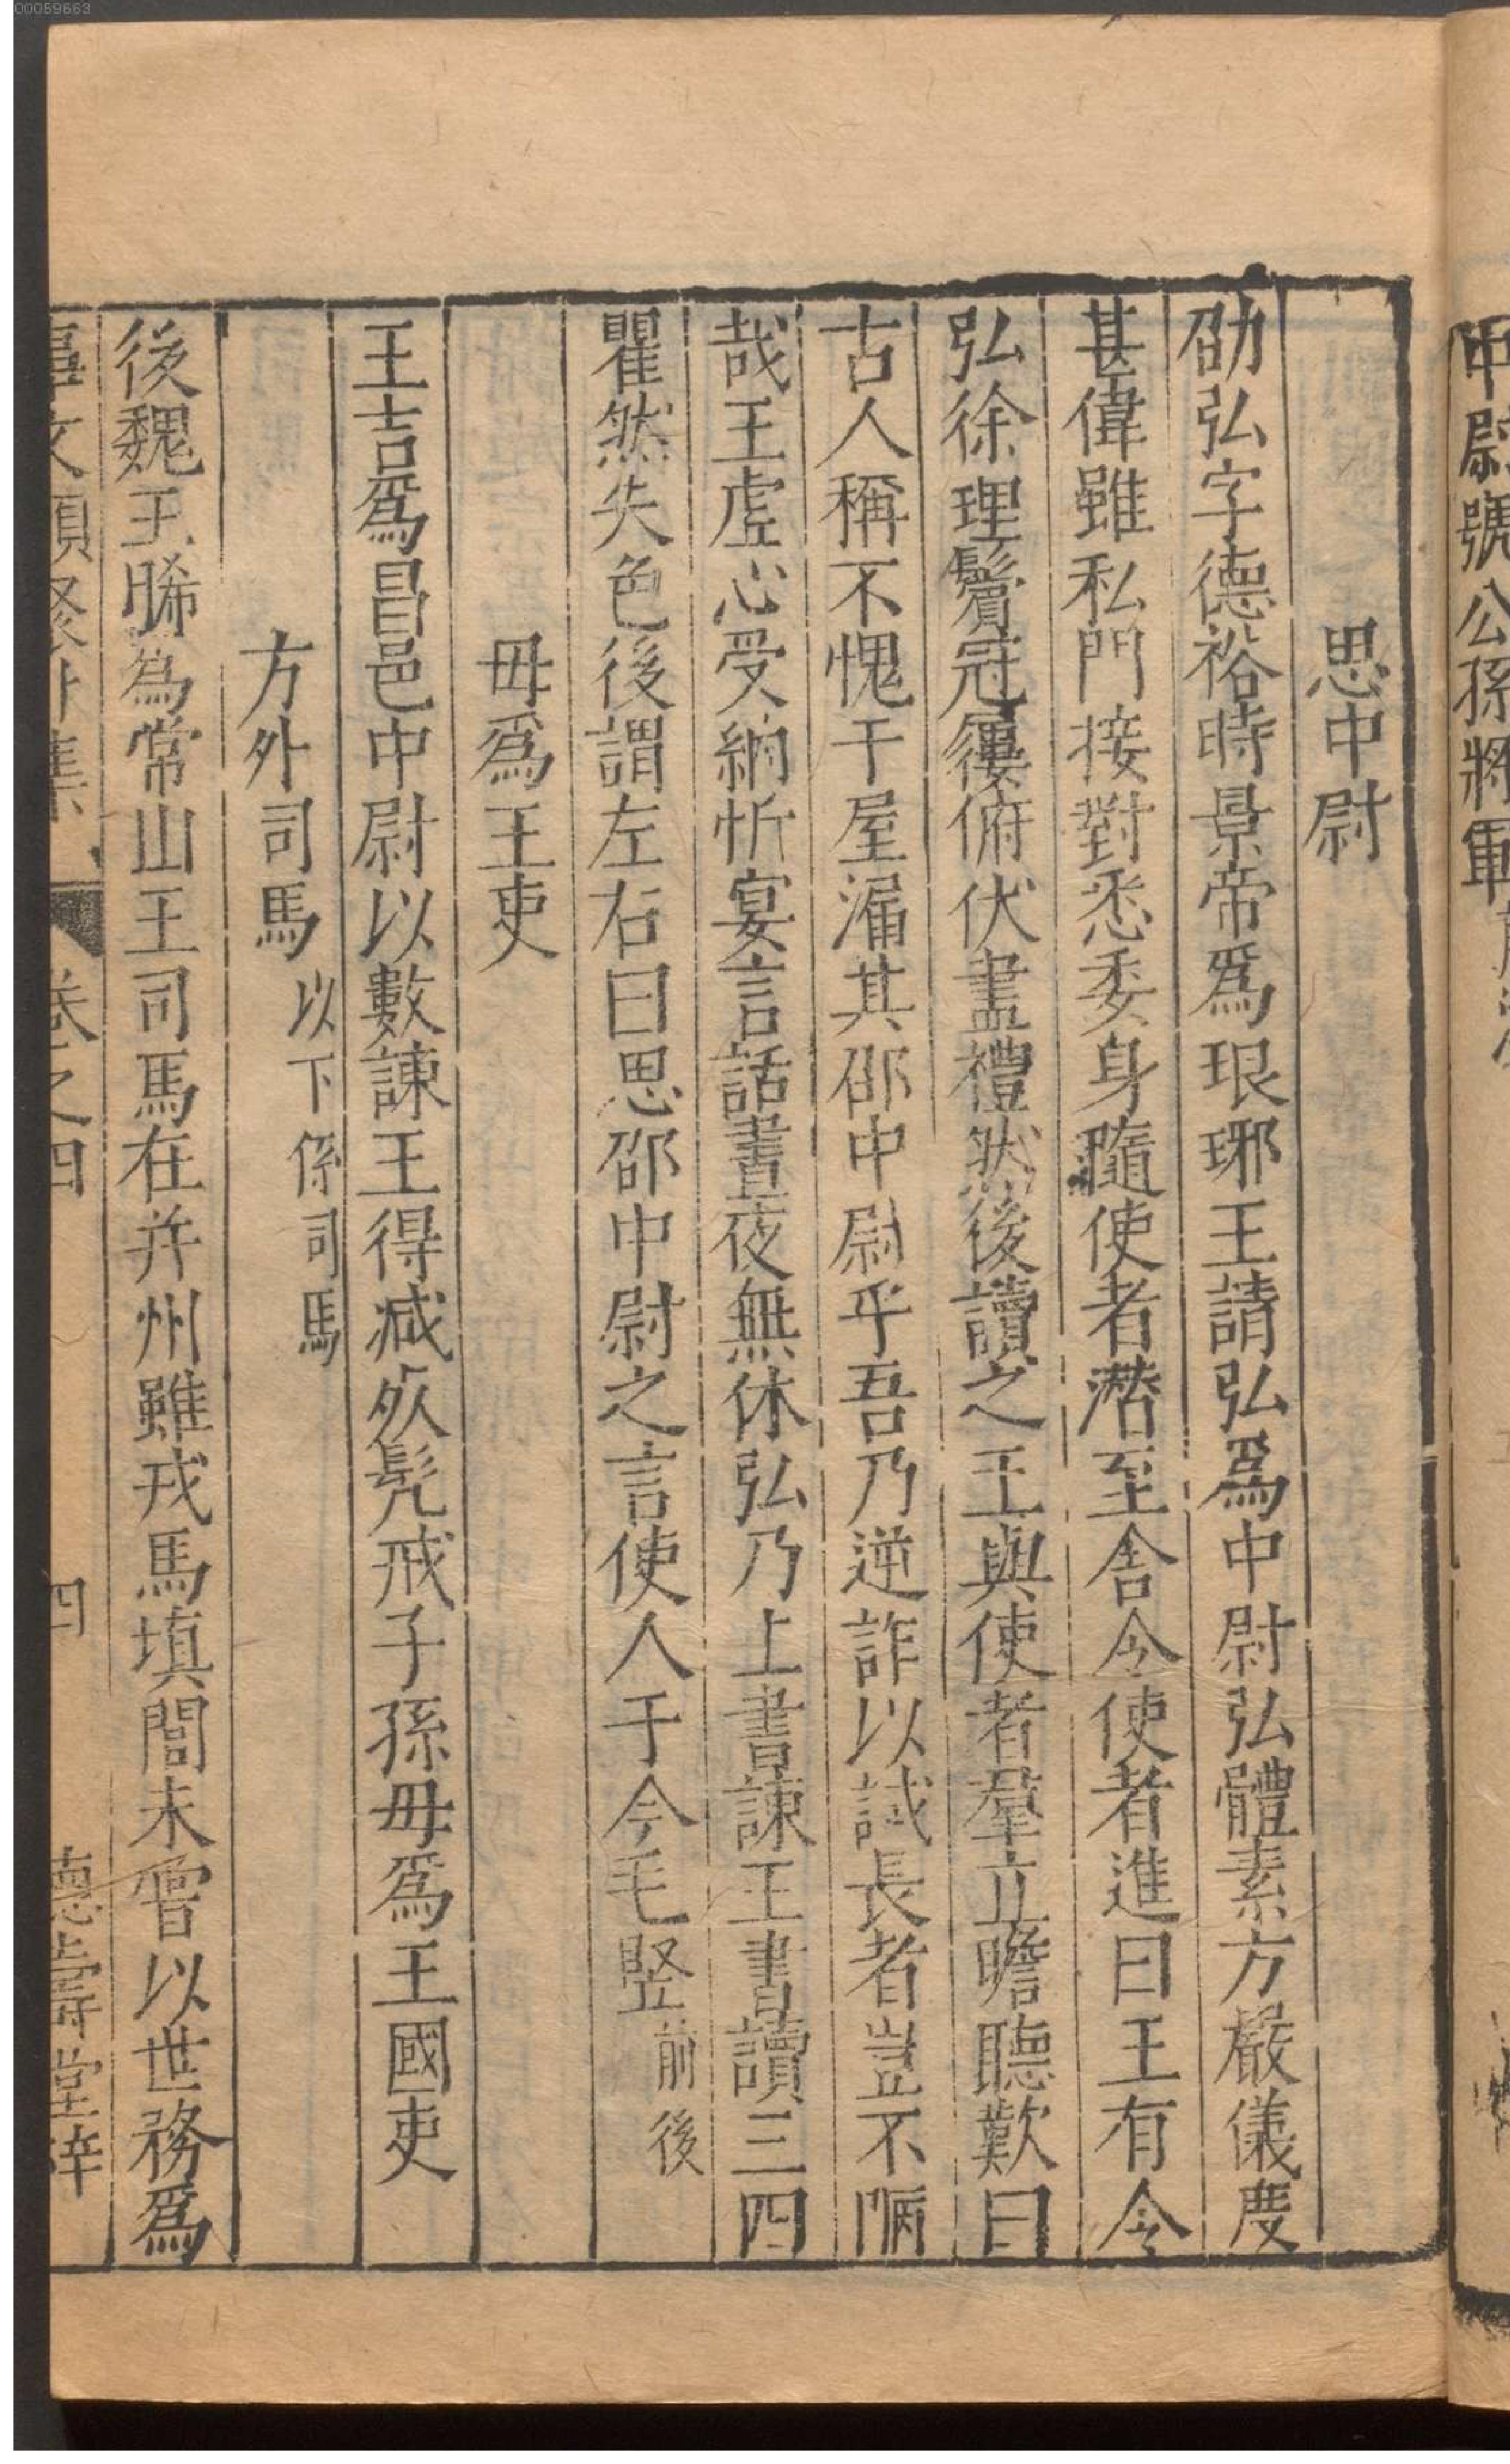 00059663
中尉號公孫將軍
思中尉
劭弘字德裕時景帝爲琅琊王請弘爲中尉弘體素方嚴儀度
甚偉雖私門接對悉委身隨使者潛至舍令使者進曰王有令
弘徐理鬢冠屨俯伏盡禮然後讀之王與使者羣立瞻聽歎曰
古人稱不愧干屋漏其邵中尉乎吾乃逆詐以試長者豈不陋
哉王虛心受納忻宴言話晝夜無休弘乃上書諫王書讀三四
瞿然失色後謂左右曰思邵中尉之言使人于今毛竪前後
毋爲王吏
王吉爲昌邑中尉以數諫王得减死髡戒子孫毋爲王國吏
方外司馬以下係司馬
後魏王睎為常山王司馬在并州雖戎馬填閭未嘗以世務爲
事文類聚外集 卷之四 四 德壽堂梓